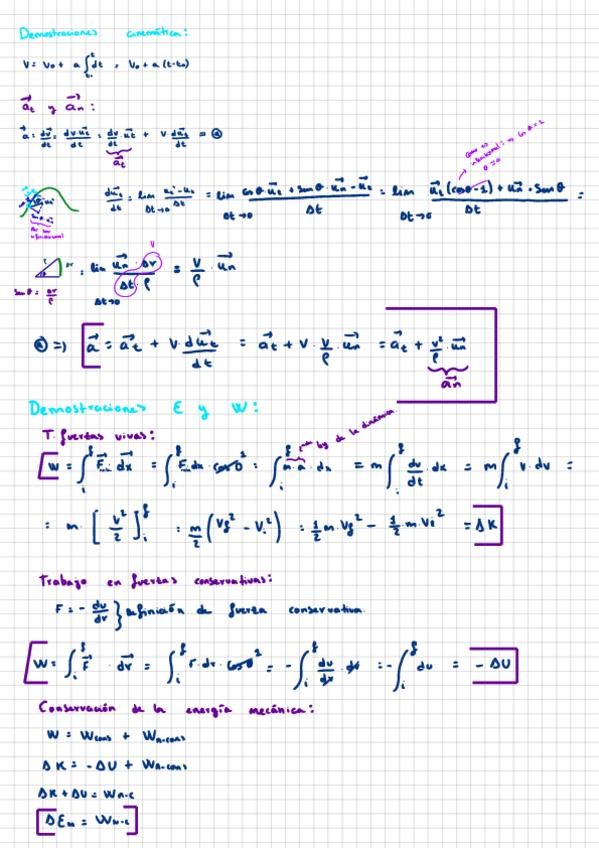 Demostraciones cinemática:
V = V₀ + a ∫ₜ₀ᵗ dt = V₀ + a (t-t₀)
a⃗ₜ y a⃗ₙ:
a⃗ = dv⃗/dt = dv u⃗ₜ/dt = dv/dt · u⃗ₜ + V du⃗ₜ/dt = ⊛
a⃗ₜ
infinitesimal => cos θ = 1
θ = 0
du⃗ₜ/dt = lim Δt→0 uₜ' - uₜ/Δt = lim Δt→0 cosθ · u⃗ₜ + senθ · u⃗ₙ - u⃗ₜ/Δt = lim Δt→0 u⃗ₜ (cosθ-1) + u⃗ₙ · senθ/Δt =
V
= lim Δt→0 u⃗ₙ · Δr/Δt · ρ = V/ρ · u⃗ₙ
senθ = Δr/ρ
⊛ => a⃗ = a⃗ₜ + V · du⃗ₜ/dt = a⃗ₜ + V · V/ρ · u⃗ₙ = a⃗ₜ + V²/ρ · u⃗ₙ
a⃗ₙ
Demostraciones E y W:
T. fuerzas vivas:
ley de la dinámica
W = ∫ᵢᶠ F⃗ · dx⃗ = ∫ᵢᶠ F · dx · cos 0 ¹ = ∫ᵢᶠ m·a · dx = m ∫ᵢᶠ dv/dt · dx = m ∫ᵢᶠ V · dv =
= m · [V²/2]ᵢᶠ = m/2 (Vf² - Vi²) = 1/2 m · Vf² - 1/2 m · Vi² = ΔK
Trabajo en fuerzas conservativas:
F = - du/dr } Definición de fuerza conservativa.
W = ∫ᵢᶠ F⃗ · dr⃗ = ∫ᵢᶠ F · dr · cos 0 ¹ = - ∫ᵢᶠ du/dr · dr = - ∫ᵢᶠ du = - ΔU
Conservación de la energía mecánica:
W = Wcons + Wn-cons
ΔK = -ΔU + Wn-cons
ΔK + ΔU = Wn-c
ΔEm = Wn-c